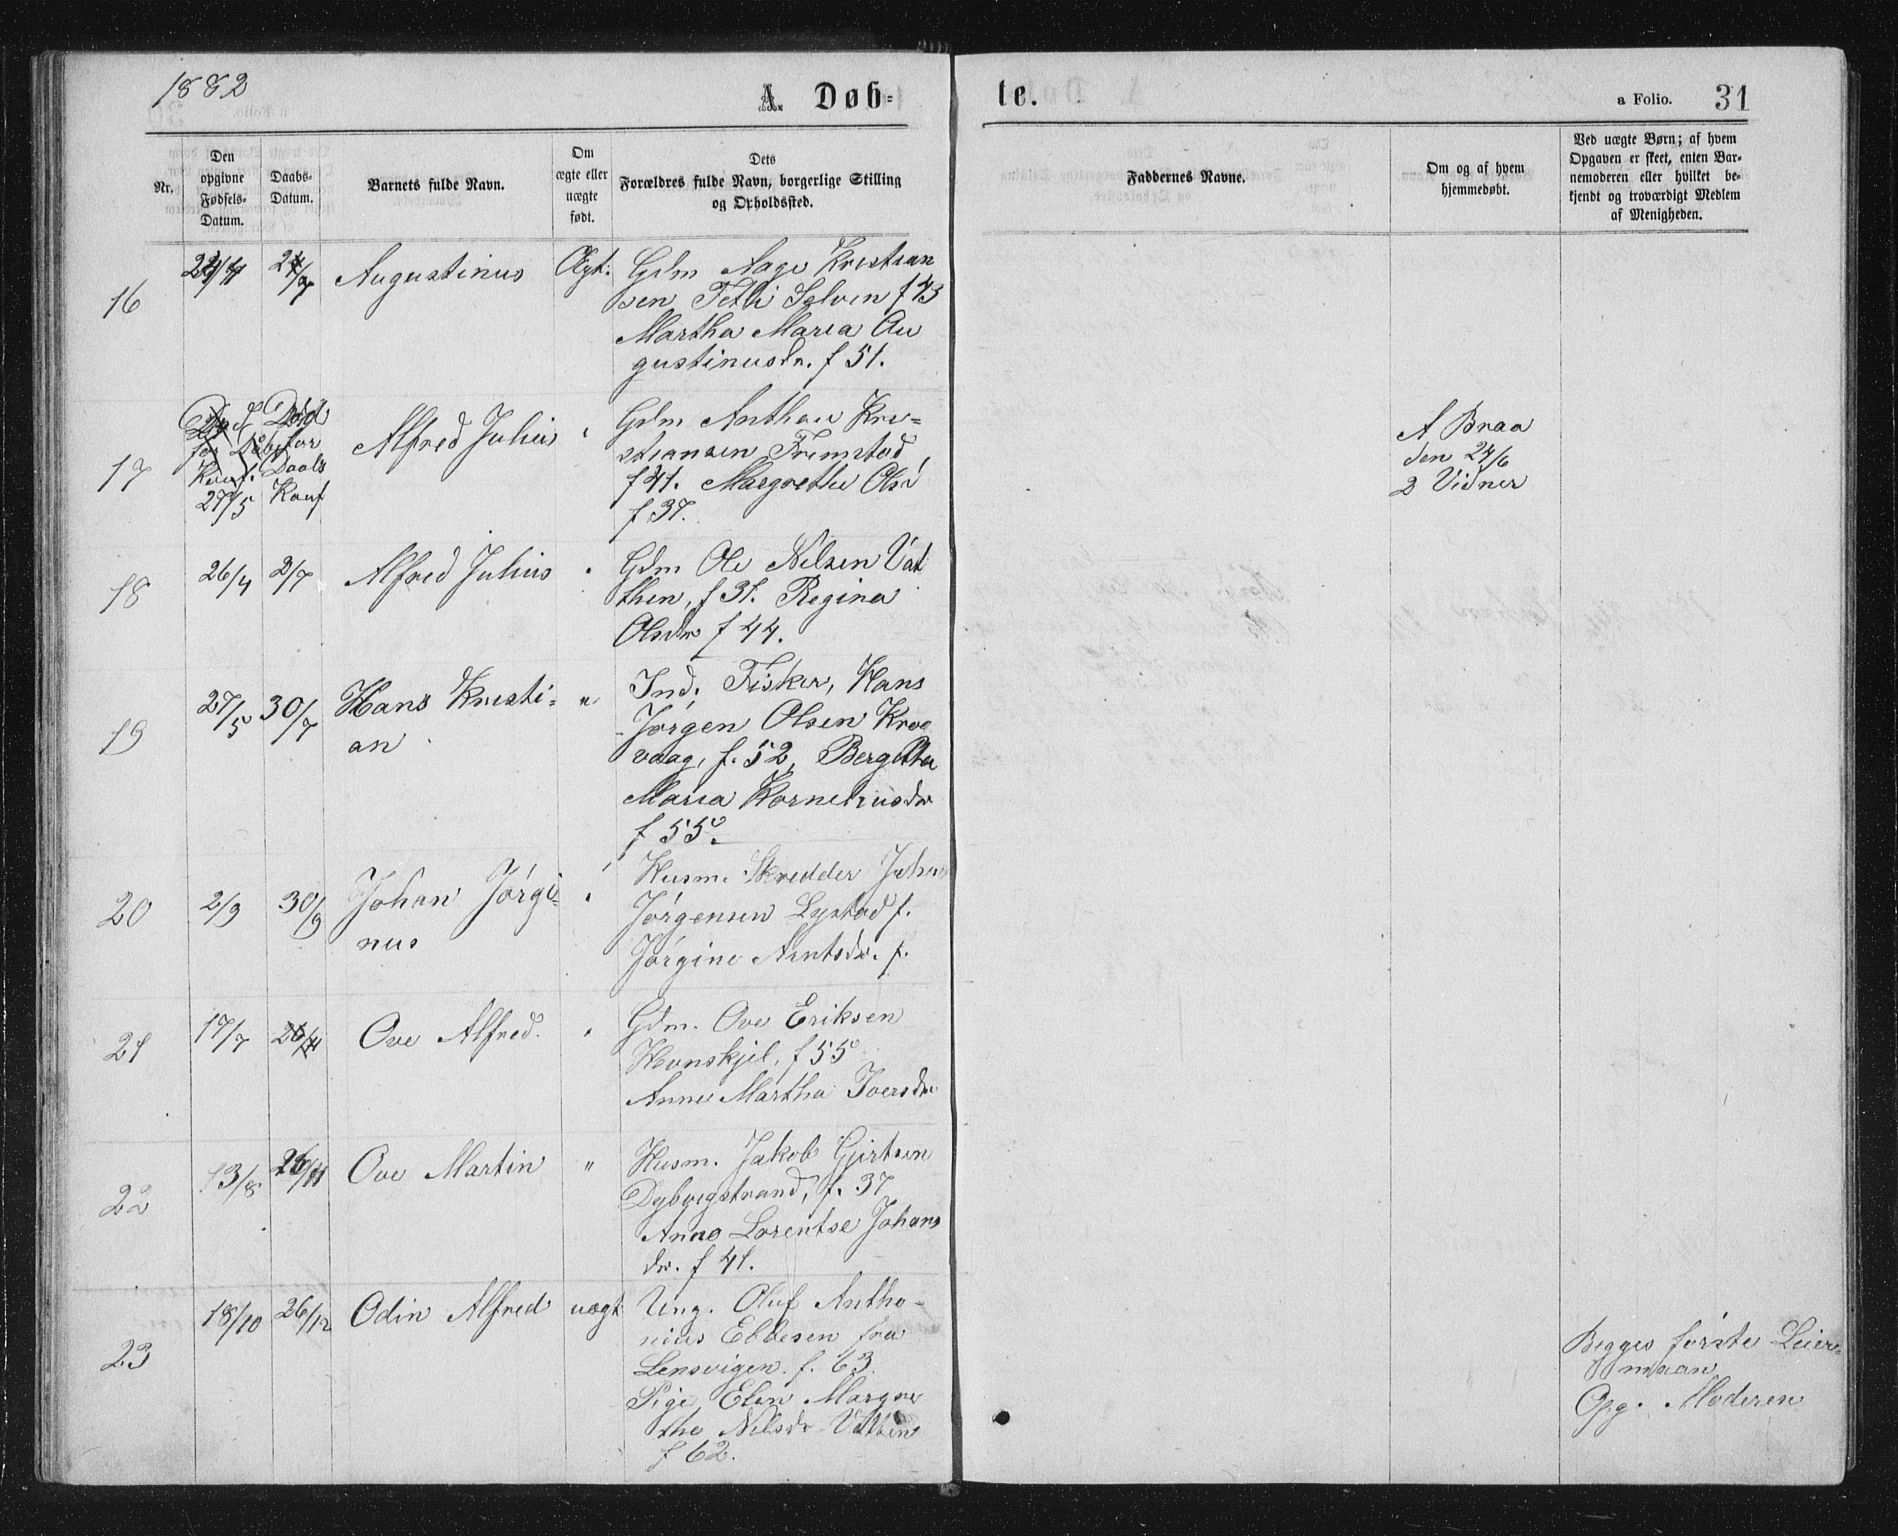 1882
A. Døb-
te.
a Folio. 31
Nr.
Den
opgivne
Fødsels-
Datum.
Daabs-
Datum.
Barnets fulde Navn.
Om
ægte eller
uægte
født.
Dets
Forældres fulde Navn, borgerlige Stilling
og Opholdssted.
Faddernes Navne.
Om og af hvem
hjemmedøbt.
Ved uægte Børn; af hvem
Opgaven er skeet, enten Bar-
nemoderen eller hvilket be-
kjendt og troværdigt Medlem
af Menigheden.
16
Augustinus
Ægt.
Gdm Aage Kristian
sen Selven f 43
Martha Maria Au
gustinusdr. f 51.
17
Død
for
Daabs
Konf
27/5
Alfred Julius
"
Gdm Anthon Kri-
stiansen Fremstad,
f 41. Margrethe Olsd
f 37.
A Braa
den 24/6
2 Vidner
18
26/4
2/7
Alfred Julius
"
Gdm Ole Nilsen Vat
then, f 31. Regina
Olsdr f 44.
19
27/5
30/7
Hans Kristi-
an
"
Ind. Fisker, Hans
Jørgen Olsen Kro
vaag, f. 52, Bergitta
Maria Korneliusdr
f 55.
20
2/9
30/9
Johan Jørgi-
nus
"
Husm. Skredder Johan
Jørgensen Lystad f.
Jørgine Arntsdr. f.
21
17/7
26/11
Ove Alfred.
"
Gdm. Ove Eriksen
Hevnskjel, f 55
Anne Martha Iversdr
22
13/8
26/11
Ove Martin
"
Husm. Jakob Gjertsen
Dybvigstrand, f. 37
Anne Lorentse Johans
dr. f 41.
23
18/10
26/12
Odin Alfred
uægt
Ung. Oluf Antho-
nius Ebbesen fra
Lensvigen. f. 63.
Pige Elen Margre
the Nilsdr Vatten
f 62.
Begges første Leier-
maan
Opg. Moderen